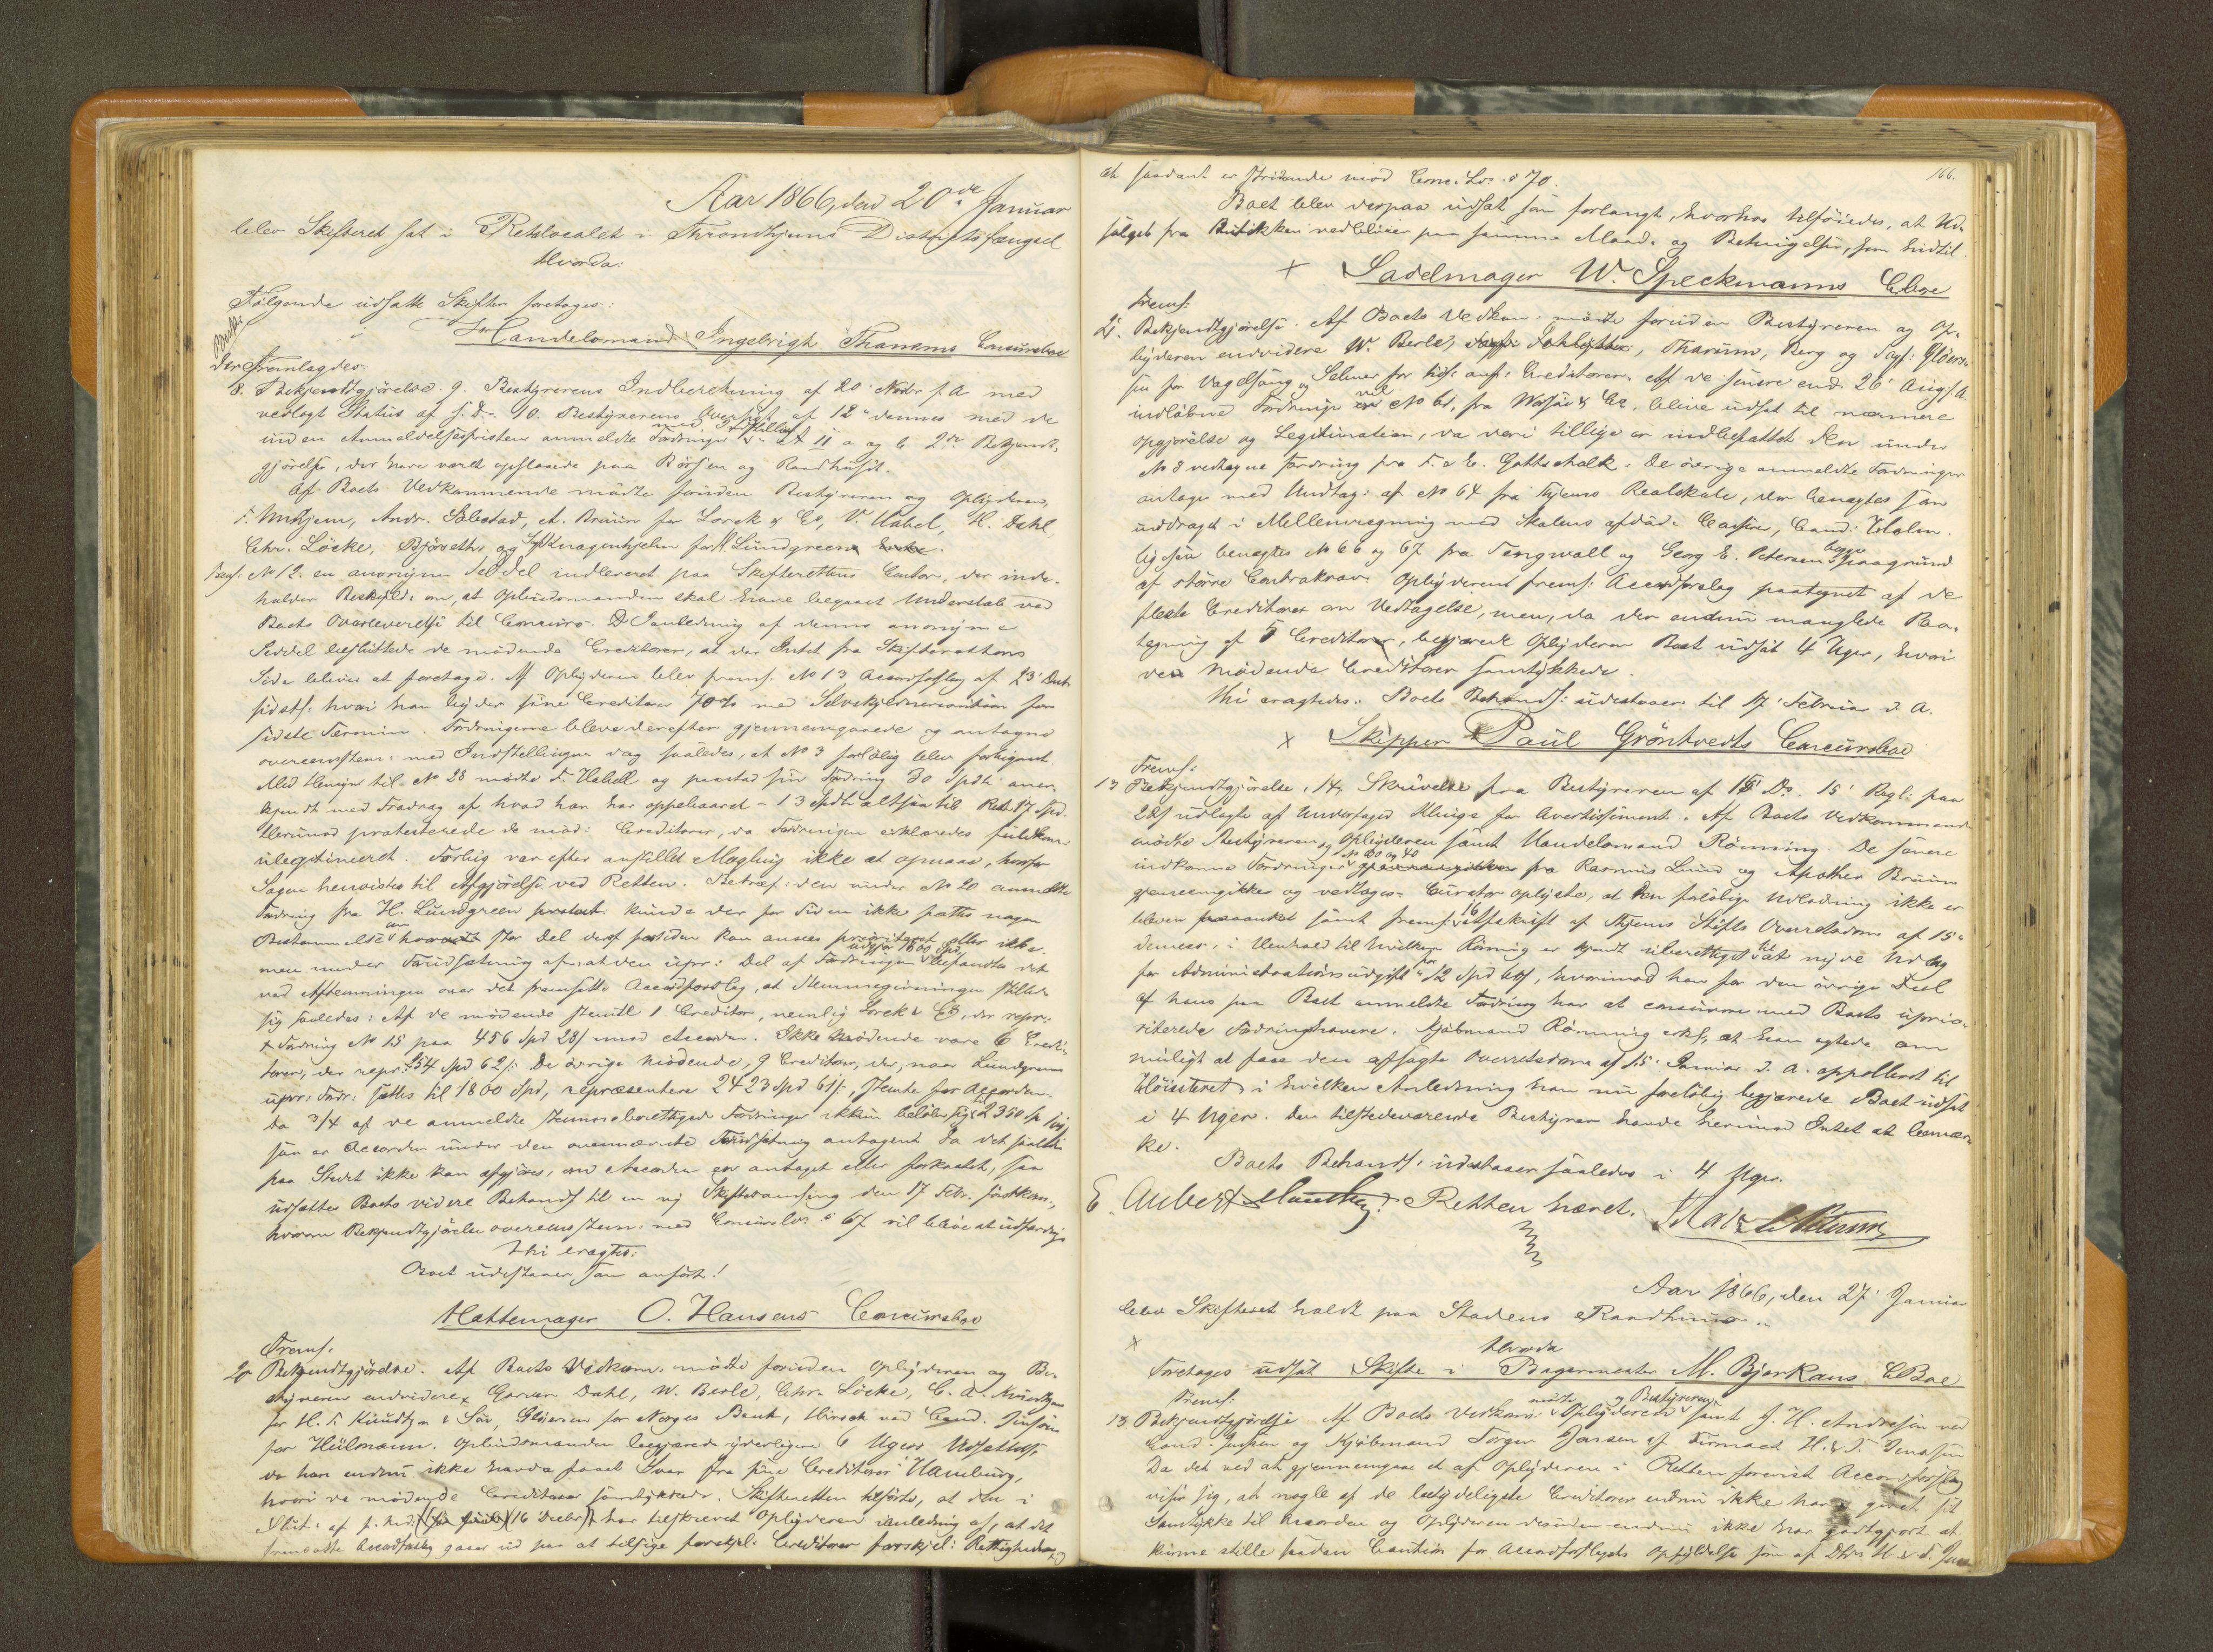 Aar 1866, den 20de Januar
blev Skifteret sat i Retslocalet i Throndhjems Distriktsfængsel
Hvorda:
Følgende udsatte Skifter foretages:
Handelsmand Ingebrigt Thanems Concursboe
Der fremlagdes:
8. Bekjendtgjørelse. 9. Bestyrerens Indberetning af 20 Novbr f A med
vedlagt Status af s. D. 10. Bestyrerens Oversigt af 12te dennes med de
inden Anmeldelsesfristen anmeldte Fordringer 11 a og b 2de Bekjendt-
gjørelser, der have været opslaaede paa Börsen og Raadhuset.
Af Boets Vedkommende mödte foruden Bestyreren og Opbyderen,
F. Unhjem, Andr. Solestad, A. Bruun for Lorck & Co, V. Habel, H. Dahl
Chr. Löcke, Björaths og Knagenhjelm for H. Lundgreens Enke.
Frems. No 12. en anonym Seddel indleveret paa Skifterettens Contor, der inde-
holder Beskyld: om, at Opbudsmanden skal have begaaet Underslæb ved
Boets Overleverelse til Concurs. I Anledning af denne anonyme
Seddel besluttede de mödende Creditorer, at der Intet fra Skifterettens
Side bliver at foretage. Af Opbyderen blev frems. No 13 Accordforslag af 23 Decbr
sidstl: hvori han byder sine Creditorer 70% med Selvskyldnercaution for
sidste Termin. Fordringerne bleve derefter gjennemgaaede og antagne
overeensstem: med Indstillingen dog saaledes, at No 3 forlöbig blev forbigaaet.
Med Hensyn til No 28 mödte F. Habell og paastod sin Fordring 30 Spdlr aner-
kjendt med Fradrag af hvad han har oppebaaret - 13 Spdlr altsaa til Rest 17 Spd.
Herimod protesterede de möd: Creditorer, da Fordringen erklæredes fuldkommen
ulegitimeret. Forlig var efter anstillet Mægling ikke at opnaae, hvorfor
Sagen henvistes til Afgjörelse ved Retten. Betræf: den under No 20 anmeldte
Fordring fra H. Lundgreen kunde der for Tiden ikke fattes nogen
Bestemmelse om hvorvidt stor Del deraf for Tiden kan ansees prioriteret eller ikke,
men under Forudsætning af, at den upr: Del af Fordringen udgjør 1800 Spd, befandtes det
ved Afstemningen over det fremsatte Accordforslag, at Stemmegivningen stillede
sig saaledes: Af de mödende stemte 1 Creditor, nemlig Lorck & Co, der repr:
Fordring No 15 paa 456 Spd 28 s. imod Accorden. Ikke mödende vare 6 Credi-
torer, der repr: 254 Spd 62 s. De övrige mödende, 9 Creditorer, der, naar Lundgreens
upr: Fordr: sættes til 1800 Spd, repræsentere 2423 Spd 61 s., stemte for Accorden.
Da 3/4 af de anmeldte stemmeberettigede Fordringer ikkun beløber sig til 2360 Sp
saa er Accorden under den ovennævnte Forudsætning antagen. Da det saaledes
paa Stedet ikke kan afgjöres, om Accorden er antaget eller forkastet, saa
udsættes Boets videre Behandl til en ny Skiftesamling den 17 Febr. förstkom:,
hvorom Bekjendtgjörelse overeensstem: med Concurslov: § 67 vil blive at udfærdige
Thi eragtes:
Boet udestaaer som anfört!
Hattemager O. Hansens Concursboe
Frems.
20 Bekjendtgjörelse. Af Boets Vedkom: mödte foruden Opbyderen og Be-
styreren endvidere Garver Dahl, W. Berle, Chr. Löcke, C. A. Kundtzon
for H. F. Kiundtzn & Sön, Glöersen for Norges Bank, Hirsch ved Cand. Jensen
for Hülmann. Opbudsmanden begjærede yderligere 6 Ugers Udsættelse,
da han endnu ikke havde faaet Svar fra sine Creditorer i Hamburg,
hvori de mödende Creditorer samtykkede. Skifteretten tilförte, at den i
Skr: af (16 Decbr) har tilskrevet Opbyderen i Anledning af, at det
fremsatte Accordforslag gaaer ud paa at tilsige forskjel: Creditorer forskjel: Rettigheder,
166.
at saadant er stridende mod Conc: Lov: § 70.
Boet blev derpaa udsat som forlangt, hvorhos tilföiedes, at Ud-
salget fra Butikken vedbliver paa samme Maade og Betingelser, som hidtil.
Sadelmager W. Speckmanns CBoe
Frems:
21. Bekjendtgjörelse. Af Boets Vedkom: mödte foruden Bestyreren og Op-
byderen endvidere W. Berle, Tharum, Berg og Sagf: Glöer-
sen for Vogelsang og Selmer for Creditorer. Af de senere end 26 Aug. f. A.
indløbne Fordringer vil No 61, fra Watsøe & Co, blive udsat til nærmere
opgjörelse og Legitimation, da deri tillige er indbefattet den under
No 8 vedtagne Fordring fra F. & E. Gottschalk. De övrige anmeldte Fordringer
antages med Undtag: af No 64 fra Thjems Realskole, den benægtes som
inddraget i Mellemregning med Skolens afdöde Casserer, Cand: Holm.
Ligesaa benægtes No 66 og 67 fra Tengwall og Georg E. Petersen begge paagrund
af större Contrakrav. Opbyderens frems: Accordforslag paategnet af de
fleste Creditorer om Vedtagelse, men, da der endnu manglede Paa-
tegning af 5 Creditorer, begjærede Opbyderen Boet udsat 4 Uger, hvori
de mödende Creditorer samtykkede.
Thi eragtedes: Boets Behandl: udestaaer til 17 Februar d. A.
Skipper Paul Gröntvedts Concursboe
Frems:
13 Bekjendtgjörelse, 14, Skrivelse fra Bestyreren af 15 Ds. 15 Regl: paa
28 s udlagte af Underfoged Klinge for Avertissement. Af Boets Vedkommende
mödte Bestyreren og Opbyderen samt Handelsmand Rönning. De senere
indkomne Fordringer No 20 og 40 fra Rasmus Lund og Apother Bruun
gjennemgikkes og vedtages. Curator oplyste, at den forlöbige Udlodning ikke er
bleven paaanket samt frems: 16 Afskrift af Thjems Stifts Overretsdom af 15de
dennes, i Henhold til hvilken Rönning er kjendt uberettiget til at nyde Udlæg
for Administrationsudgift for 12 Spd 60 s, hvorimod han for den övrige Deel
af hans paa Boet anmeldte Fordring har at concurrere med Boets uprio-
riterede Fordringshavere. Kjöbmand Rönning erkl, at han agtede om
muligt at faae den afsagte Overretsdom af 15 Januar d. A. appelleret til
Höiesteret, i hvilken Anledning han nu forelöbig begjærede Boet udsat
i 4 Uger. Den tilstedeværende Bestyrer havde herimod Intet at bemær-
ke.
Boets Behandl: udestaaer saaledes i 4 Uger.
E. Aubert Retten hævet.
Aar 1866, den 27 Januar
blev Skifteret holdt paa Stadens Raadhuus
Hvorda
Foretages udsat Skifte i Bagermester M. Bjerkans CBoe
Frems.
13 Bekjendtgjörelse Af Boets Vedkom: mödte Opbyderen og Bestyreren samt J. H. Andresen ved
Cand. Jensen og Kjöbmand Torger Jensen af Firmaet H. & T. Jenssen
Da det ved at gjennemgaae et af Opbyderen i Retten foreviist Accordforslag
viser sig, at nogle af de betydeligste Creditorer endnu ikke have givet sit
Samtykke til Accorden og Opbyderen desuden endnu ikke har godtgjort at
kunne stille saadan Caution for Accordforslagets Opfyldelse som af Dhrr H. & T.